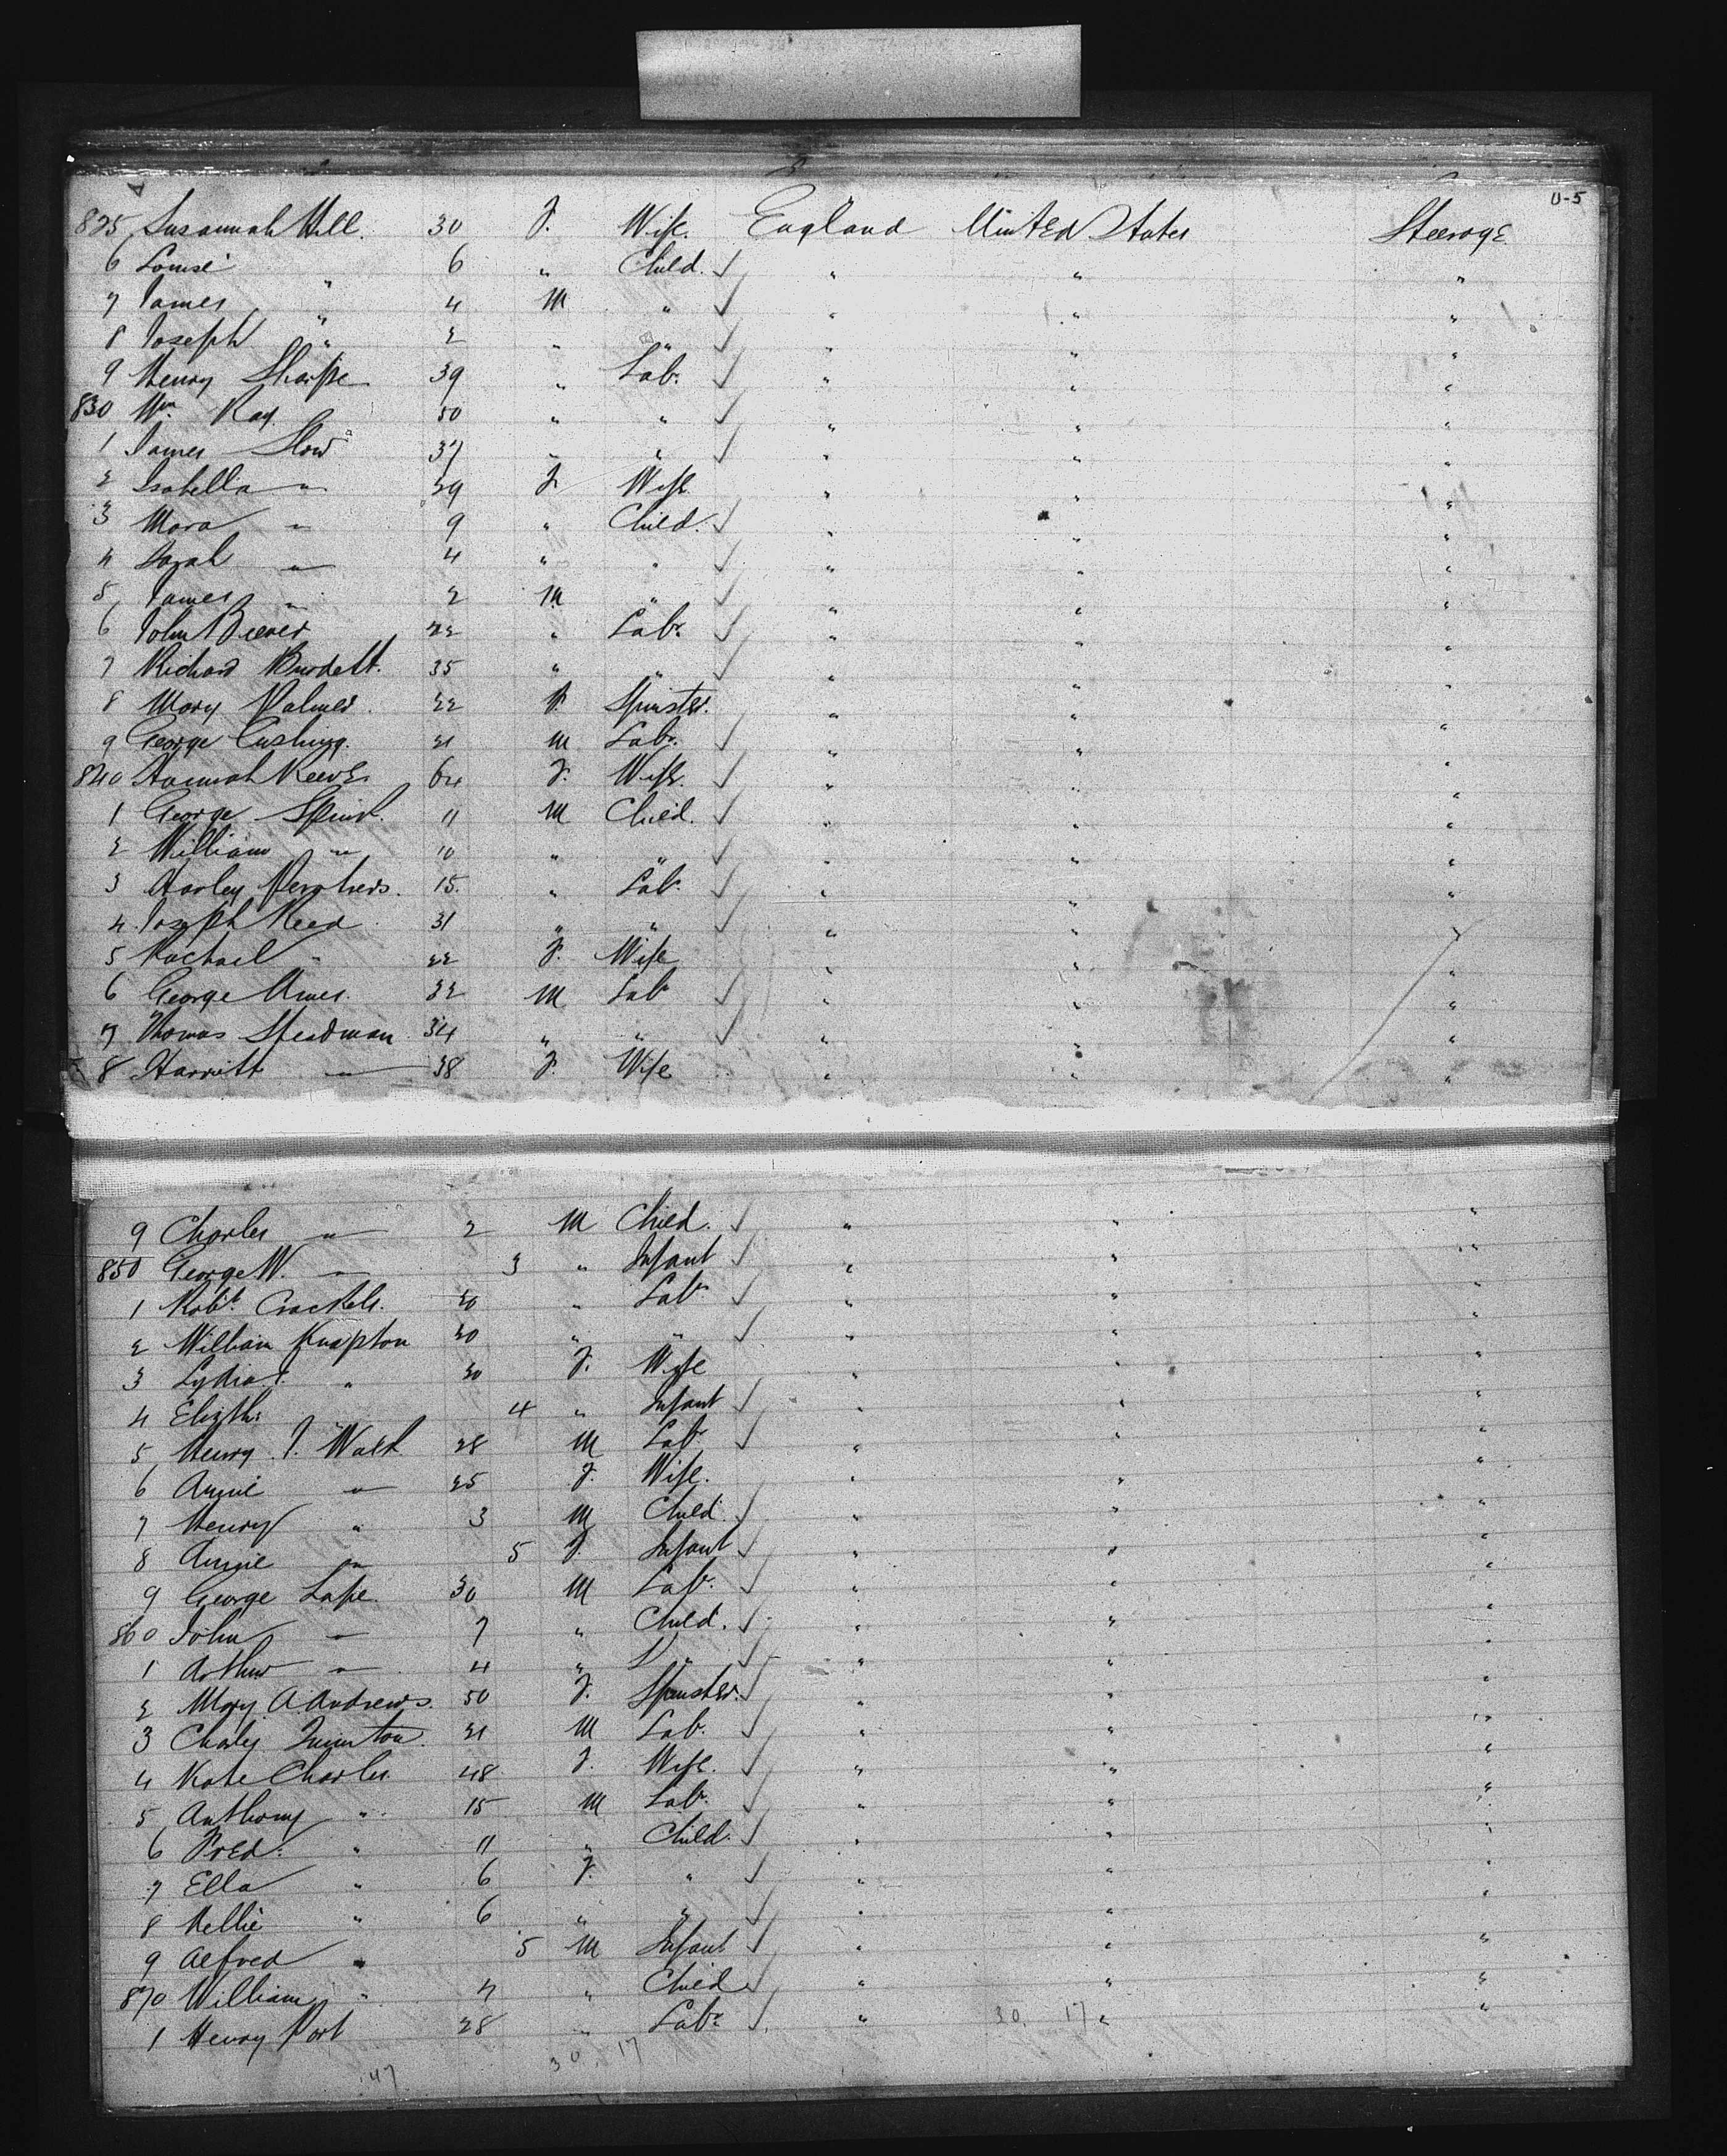 U-5
825 Susannah Hill. 30 F. Wife. England United States Steerage
6 Louise " 6 " Child. " " "
7 James " 4 M " " " "
8 Joseph " 2 " " " " "
9 Henry Sharpe 39 " Labr. " " "
830 Wm. Ray 50 " " " " "
1 James Slow 37 " " " " "
2 Isabella " 29 F Wife " " "
3 Mara " 9 " Child. " " "
4 Sarah " 4 " " " " "
5 James " 2 M " " " "
6 John 22 " Labr. " " "
7 Richard Burdett. 35 " " " " "
8 Mary Palmer 22 F. Spinster. " " "
9 George Cushing. 21 M Labr. " " "
840 Hannah Reeves 64 F. Wife. " " "
1 George 11 M Child. " " "
2 William " 10 " " " " "
3 Harley 15. " Labr. " " "
4 Joseph Reed 31 " " " " "
5 Rachael " 22 F. Wife " " "
6 George Ames. 32 M Labr " " "
7 Thomas Steadman 34 " " " " "
8 Harriett " 38 F. Wife " " "
9 Charles " 2 M Child. " " "
850 George W. " 3 " Infant " " "
1 Robt. 20 " Labr. " " "
2 William Knapton 20 " " " " "
3 Lydia " 20 F. Wife " " "
4 Elizth: 4 " Infant " " "
5 Henry J. 28 M Labr " " "
6 Annie " 25 F. Wife. " " "
7 Henry " 3 M Child. " " "
8 Annie " 5 F. Infant " " "
9 George Lape. 30 M Labr. " " "
860 John " 7 " Child. " " "
1 Arthur " 4 " " " " "
2 Mary A. Andrews. 50 F. Spinster. " " "
3 Charley Quinton. 21 M Labr. " " "
4 Kate Charles 48 F. Wife. " " "
5 Anthony " 15 M Labr. " " "
6 Fred. " 11 " Child. " " "
7 Ella " 6 F. " " " "
8 Nellie " 6 " " " " "
9 Alfred " 5 M Infant " " "
870 William " " Child " " "
1 Henry Port 28 " Labr. " 30. 17 " "
47 30. 17